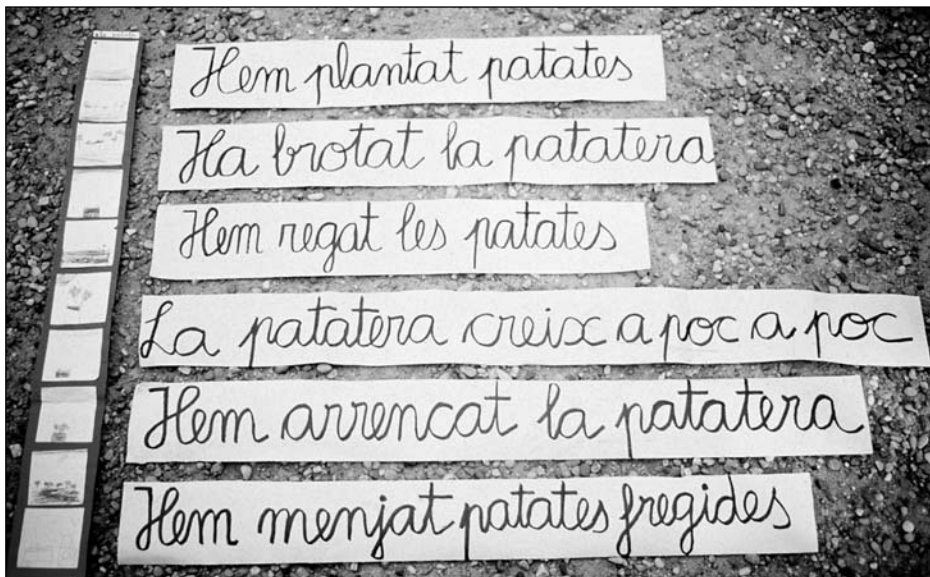 Hem plantat patates
Ha brotat la patatera
Hem regat les patates
La patatera creix a poc a poc
Hem arrencat la patatera
Hem menjat patates fregides